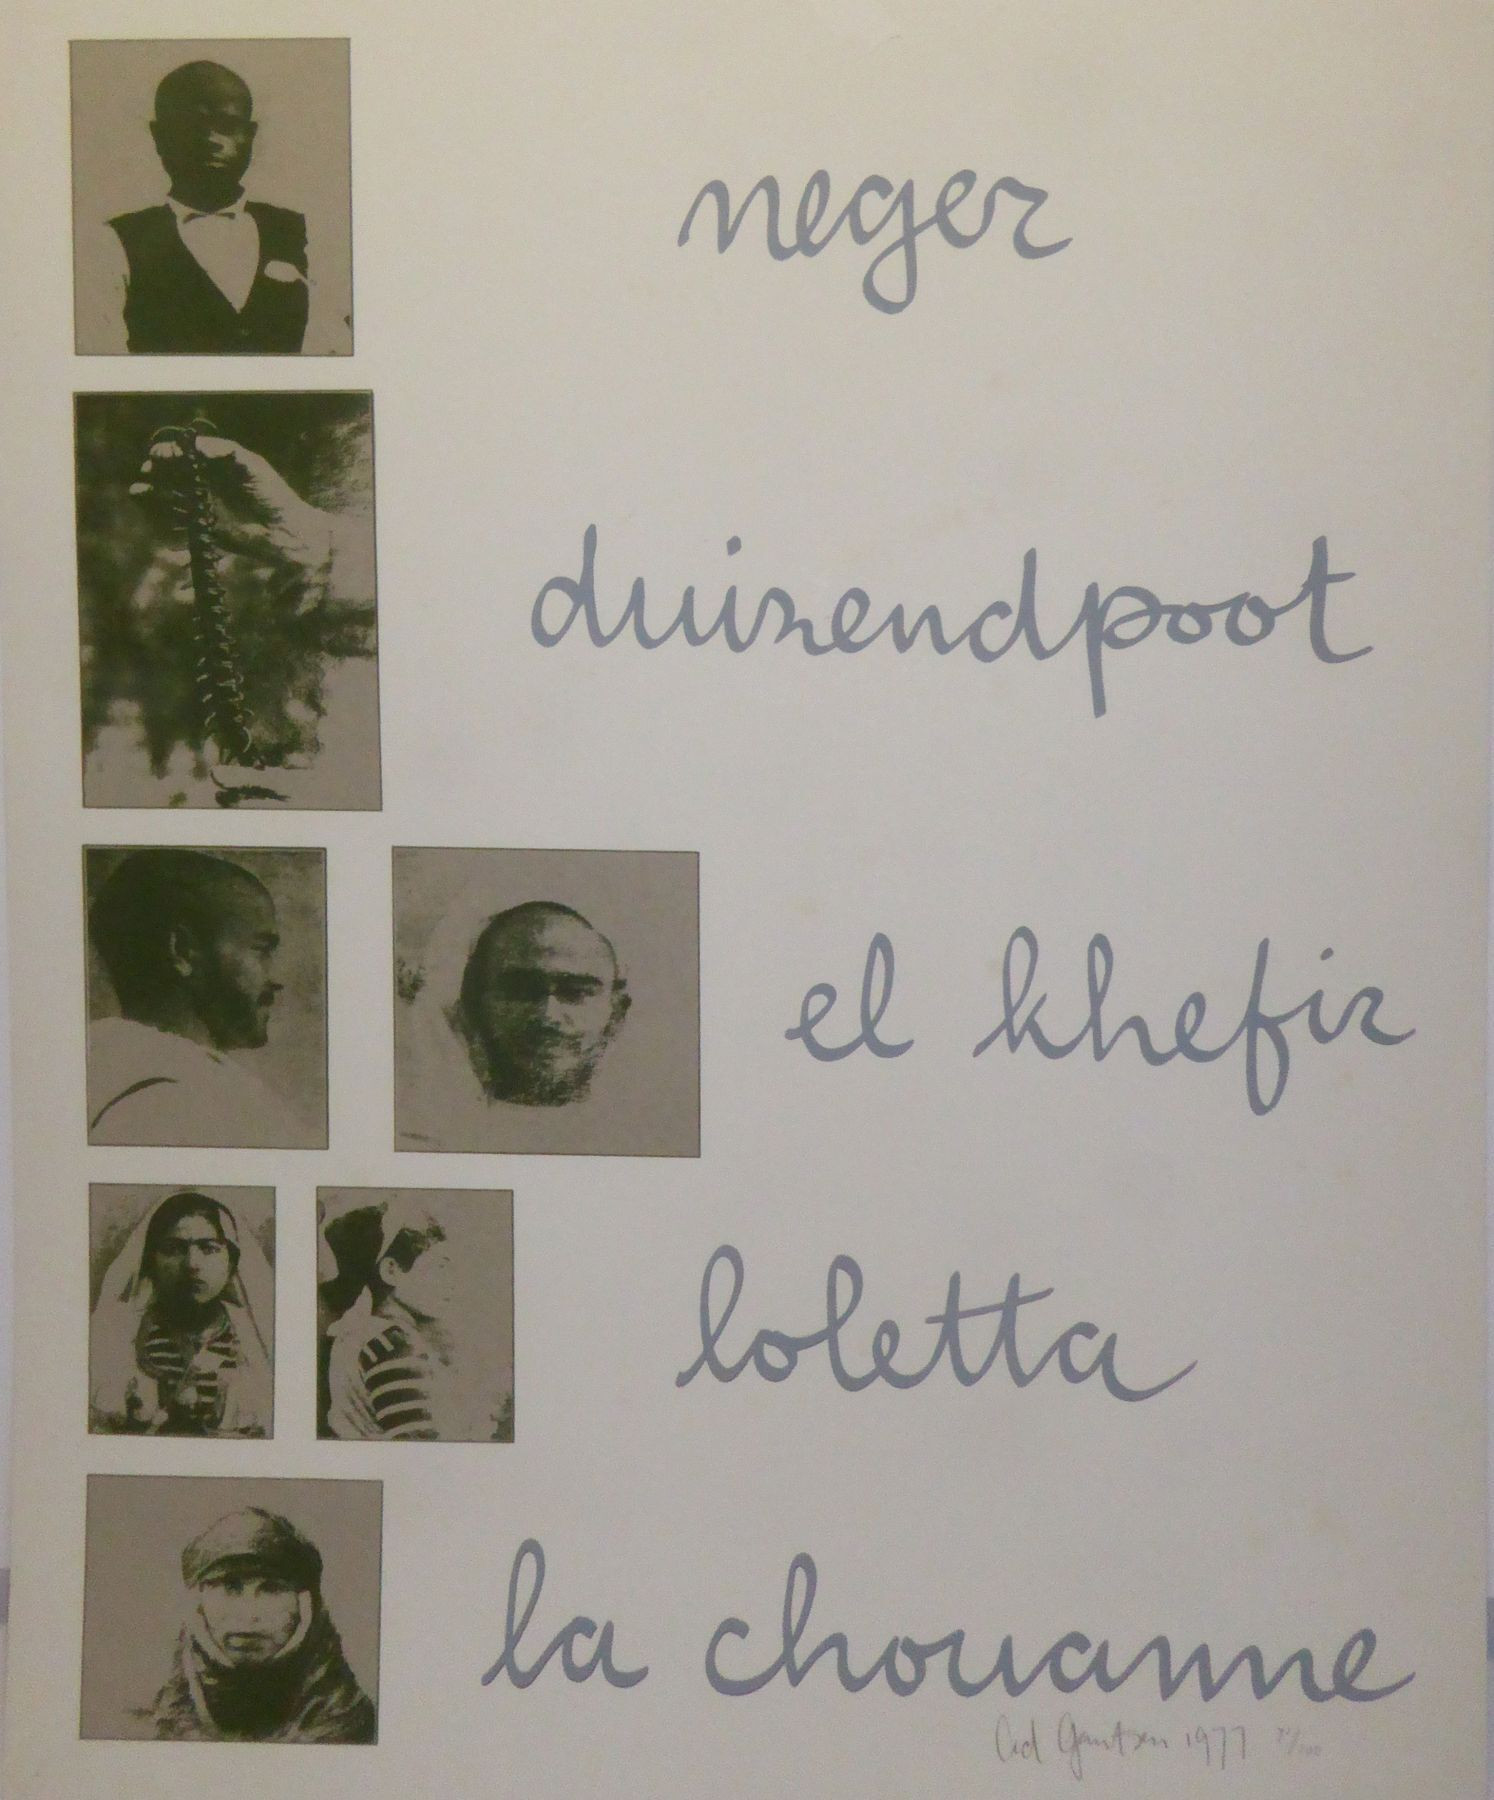 neger
duizendpoot
el khefir
loletta
la chouanne
Ad Gerritsen 1977